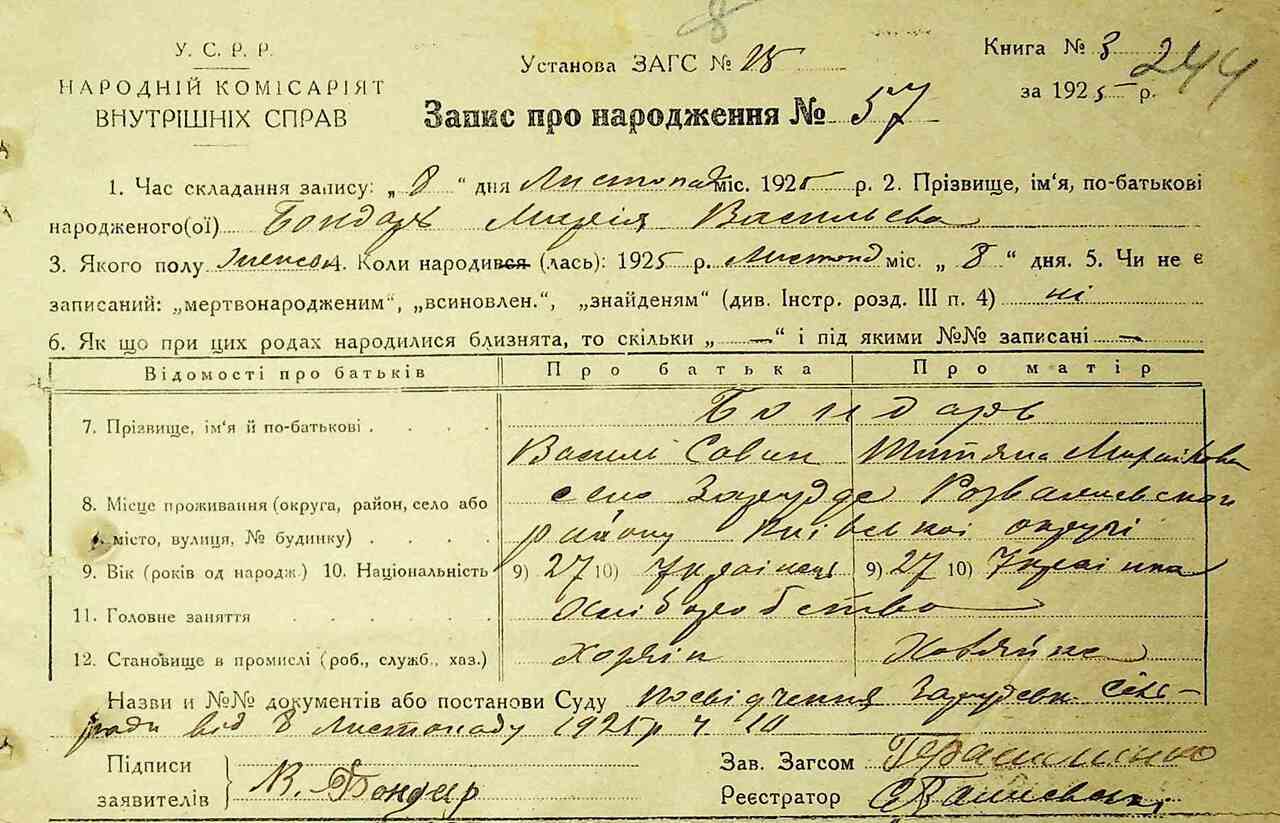 8
У. С. Р. Р.
НАРОДНІЙ КОМІСАРІЯТ
ВНУТРІШНІХ СПРАВ
Установа ЗАГС №
Книга № 3 244
за 1925 р.
Запис про народження № 57
1. Час складання запису: „ 8 “ дня Листопад міс. 1925 р. 2. Прізвище, ім‘я, по-батькові
народженого(ої) Бондарь Марія Васильева
3. Якого полу 4. Коли народився (лась): 1925 р. Листопад міс. „ 8 “ дня. 5. Чи не є
записаний: „мертвонародженим“, „всиновлен.“, „знайденям“ (див. Інстр. розд. III п. 4) ні
6. Як що при цих родах народилися близнята, то скільки „ — “ і під якими №№ записані —
Відомості про батьків Про батька Про матір
7. Прізвище, ім‘я й по-батькові Бондарь
Василь Савин
8. Місце проживання (округа, район, село або село
місто, вулиця, № будинку) району Київської округи
9. Вік (років од народж.) 10. Національність 9) 27 10) Українець 9) 27 10) Українка
11. Головне заняття Хліборобство
12. Становище в промислі (роб., служб., хаз.)
Назви и №№ документів або постанови Суду посвідчення сель-
ради від 8 Листопаду 1925 р ч.
Підписи
заявителів В. Бондар
Зав. Загсом Герасименко
Реєстратор